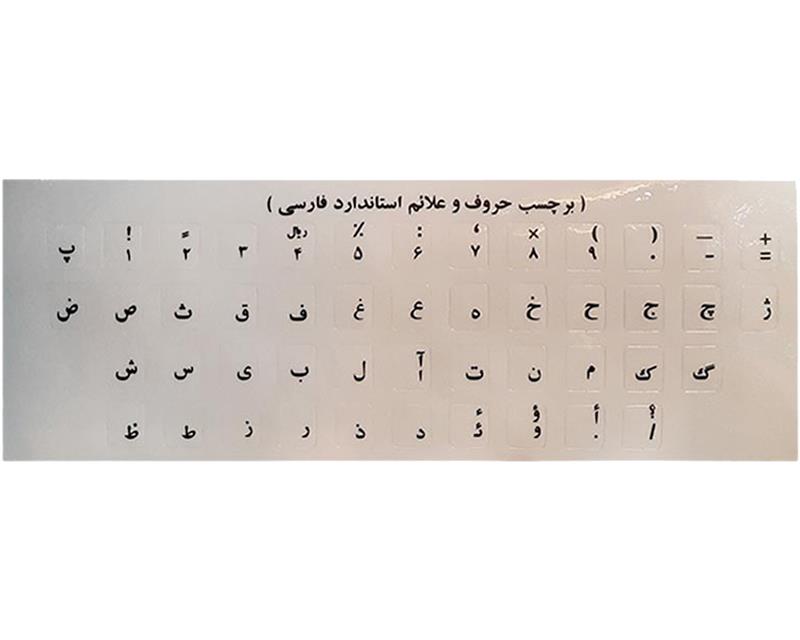 ( برچسب حروف و علائم استاندارد فارسی )
! = ریال ٪ : ، × ( ) — +
پ ۱ ۲ ۳ ۴ ۵ ۶ ۷ ۸ ۹ ۰ - =
ض ص ث ق ف غ ع ه خ ح ج چ ژ
آ
ش س ی ب ل ا ت ن م ک گ
ء ؤ أ ؟
ظ ط ز ر ذ د ئ و . /